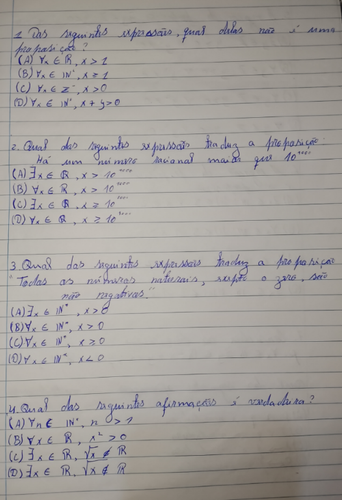 1. Das seguintes expressões, qual delas não é uma
proposição?
(A) ∀x ∈ ℝ, x > 1
(B) ∀x ∈ ℕ*, x ≥ 1
(C) ∀x ∈ ℤ⁻, x > 0
(D) ∀x ∈ ℕ*, x + y > 0
2. Qual das seguintes expressões traduz a proposição
Há um número racional maior que 10
(A) ∃x ∈ ℚ, x > 10
(B) ∀x ∈ ℝ, x > 10
(C) ∃x ∈ ℚ, x ≥ 10
(D) ∀x ∈ ℚ, x ≥ 10
3. Qual das seguintes expressões traduz a proposição
"Todas os números naturais, exepto o zero, são
não negativas."
(A) ∃x ∈ ℕ*, x > 0
(B) ∀x ∈ ℕ*, x > 0
(C) ∀x ∈ ℕ*, x ≥ 0
(D) ∀x ∈ ℕ*, x < 0
4. Qual das seguintes afirmações é verdadeira?
(A) ∀n ∈ ℕ*, n > 1
(B) ∀x ∈ ℝ, x² > 0
(C) ∃x ∈ ℝ, √x ∉ ℝ
(D) ∃x ∈ ℝ, √x ∉ ℝ